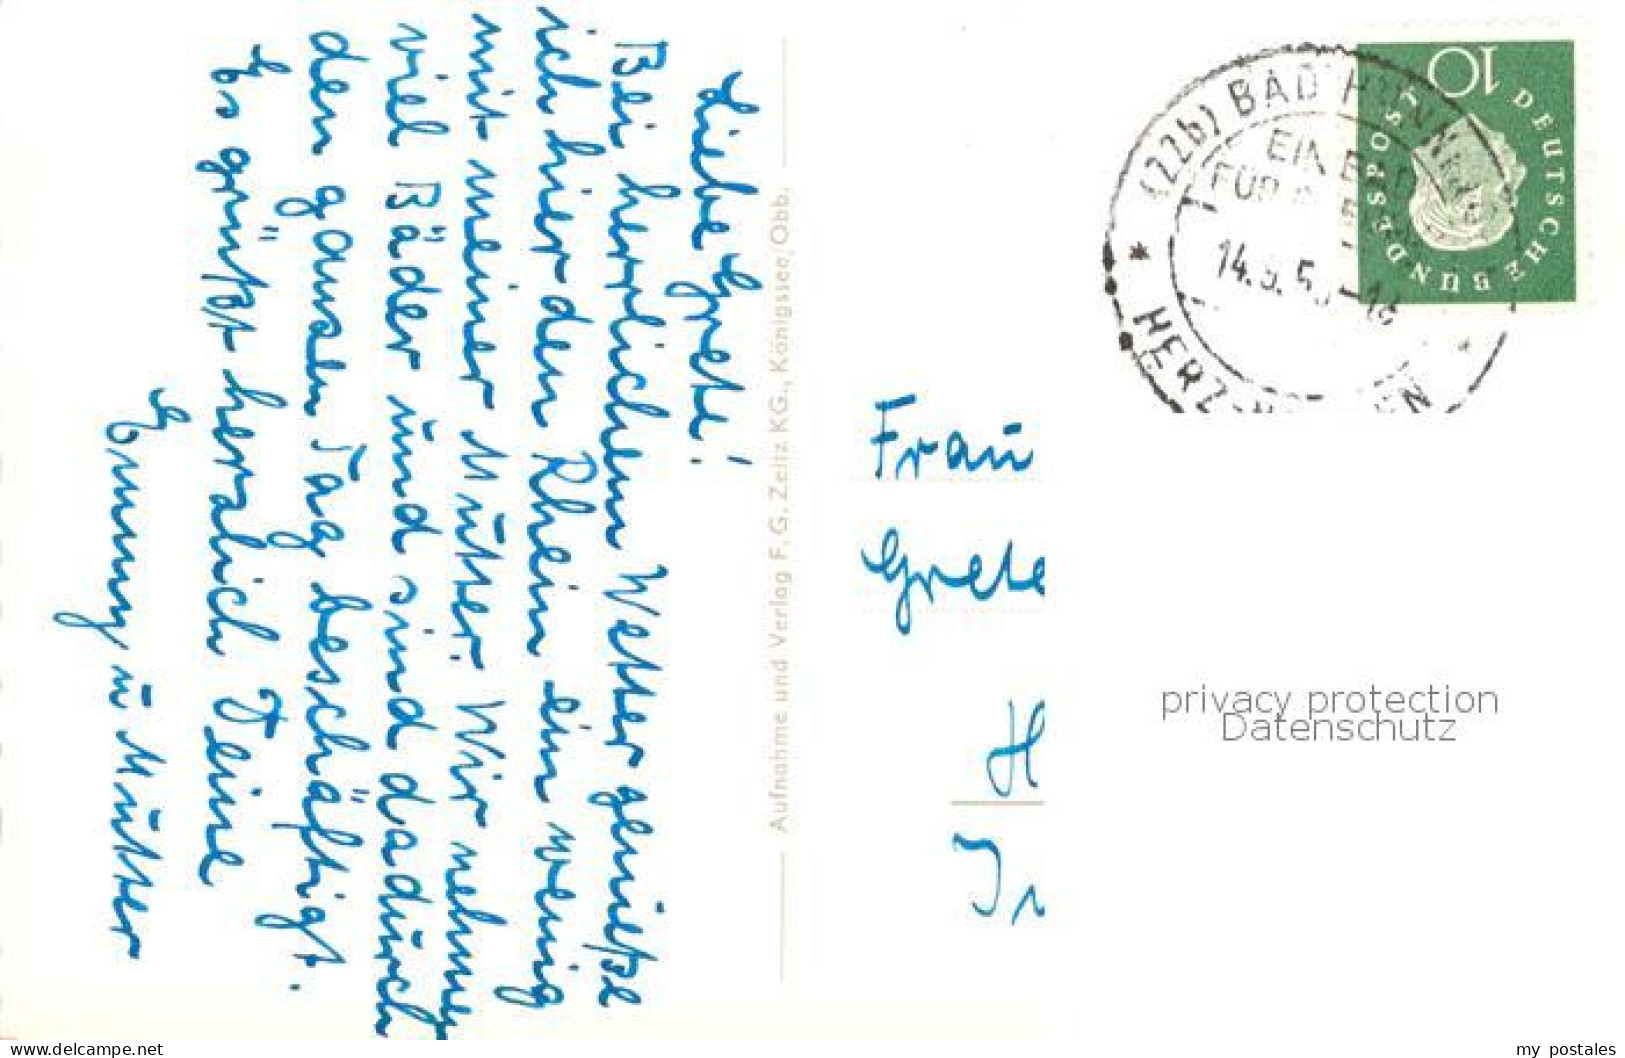 Liebe Grete!
Bei herrlichem Wetter genieße
ich hier den Rhein ein wenig
mit meiner Mutter. Wir nehmen
viel Bäder und sind dadurch
den ganzen Tag beschäftigt.
Es grüßt herzlich Deine
Emmy u Mutter
Aufnahme und Verlag F. G. Zeitz KG., Königssee/Obb.
(22b) BAD HÖNNINGEN
EIN BAD
FÜR
14.9.5
HERZ-
DEUTSCHE BUNDESPOST
10
Frau
Grete
H
privacy protection
Datenschutz
www.delcampe.net
my_postales